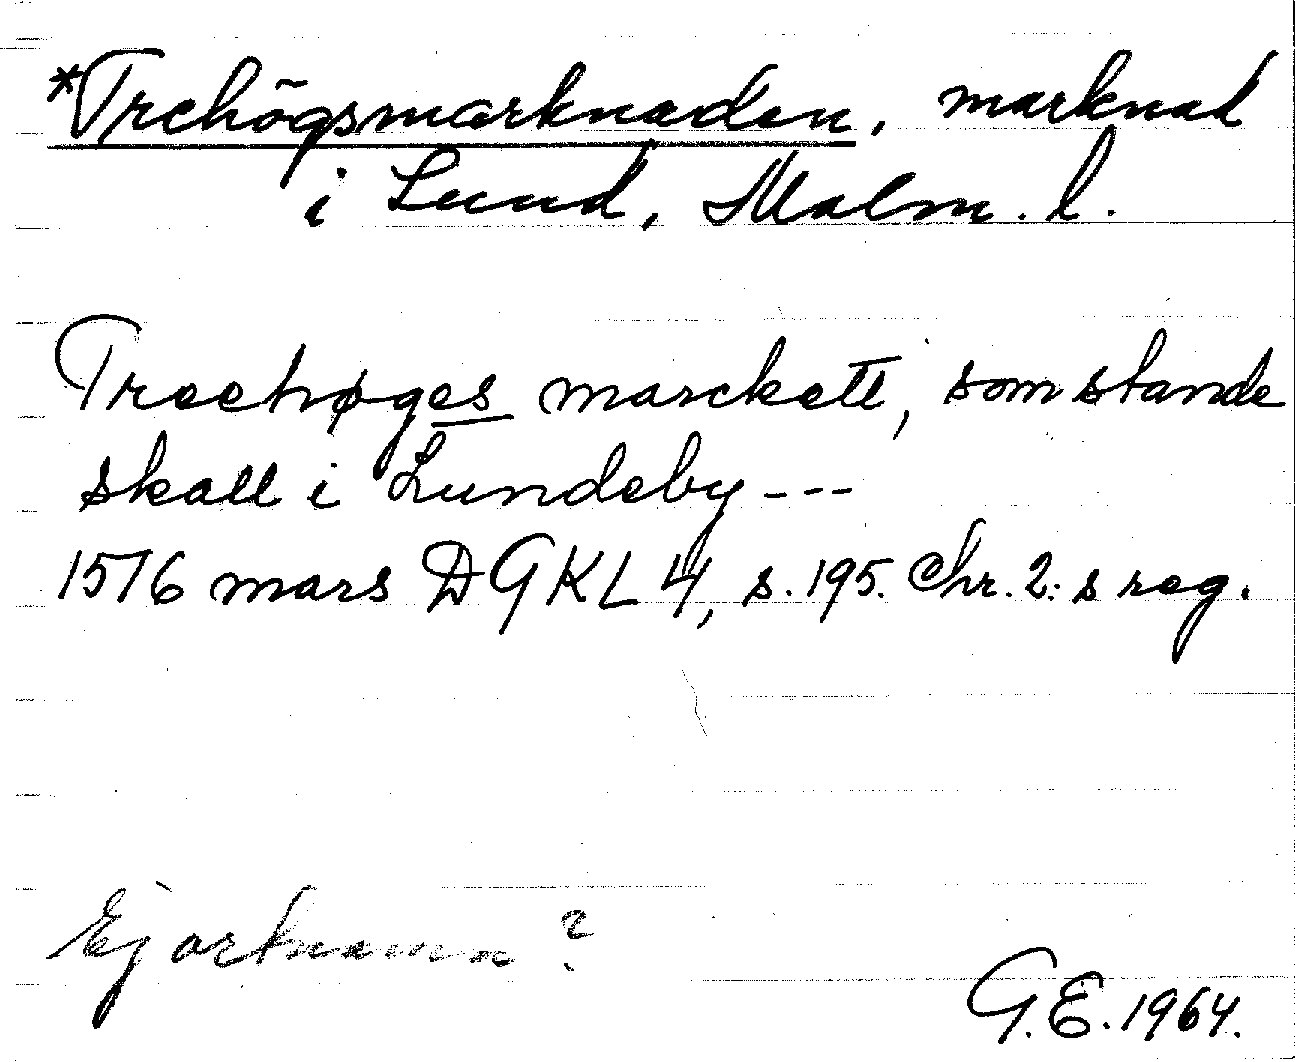 *Trehögsmarknaden, marknad
i Lund, Malm. l.
Treehøges marckett, som stande
skall i Lundeby ---
1576 mars DGKL 4, s. 195. Chr. 2:s reg.
Ej ortnamn?
G.E. 1964.